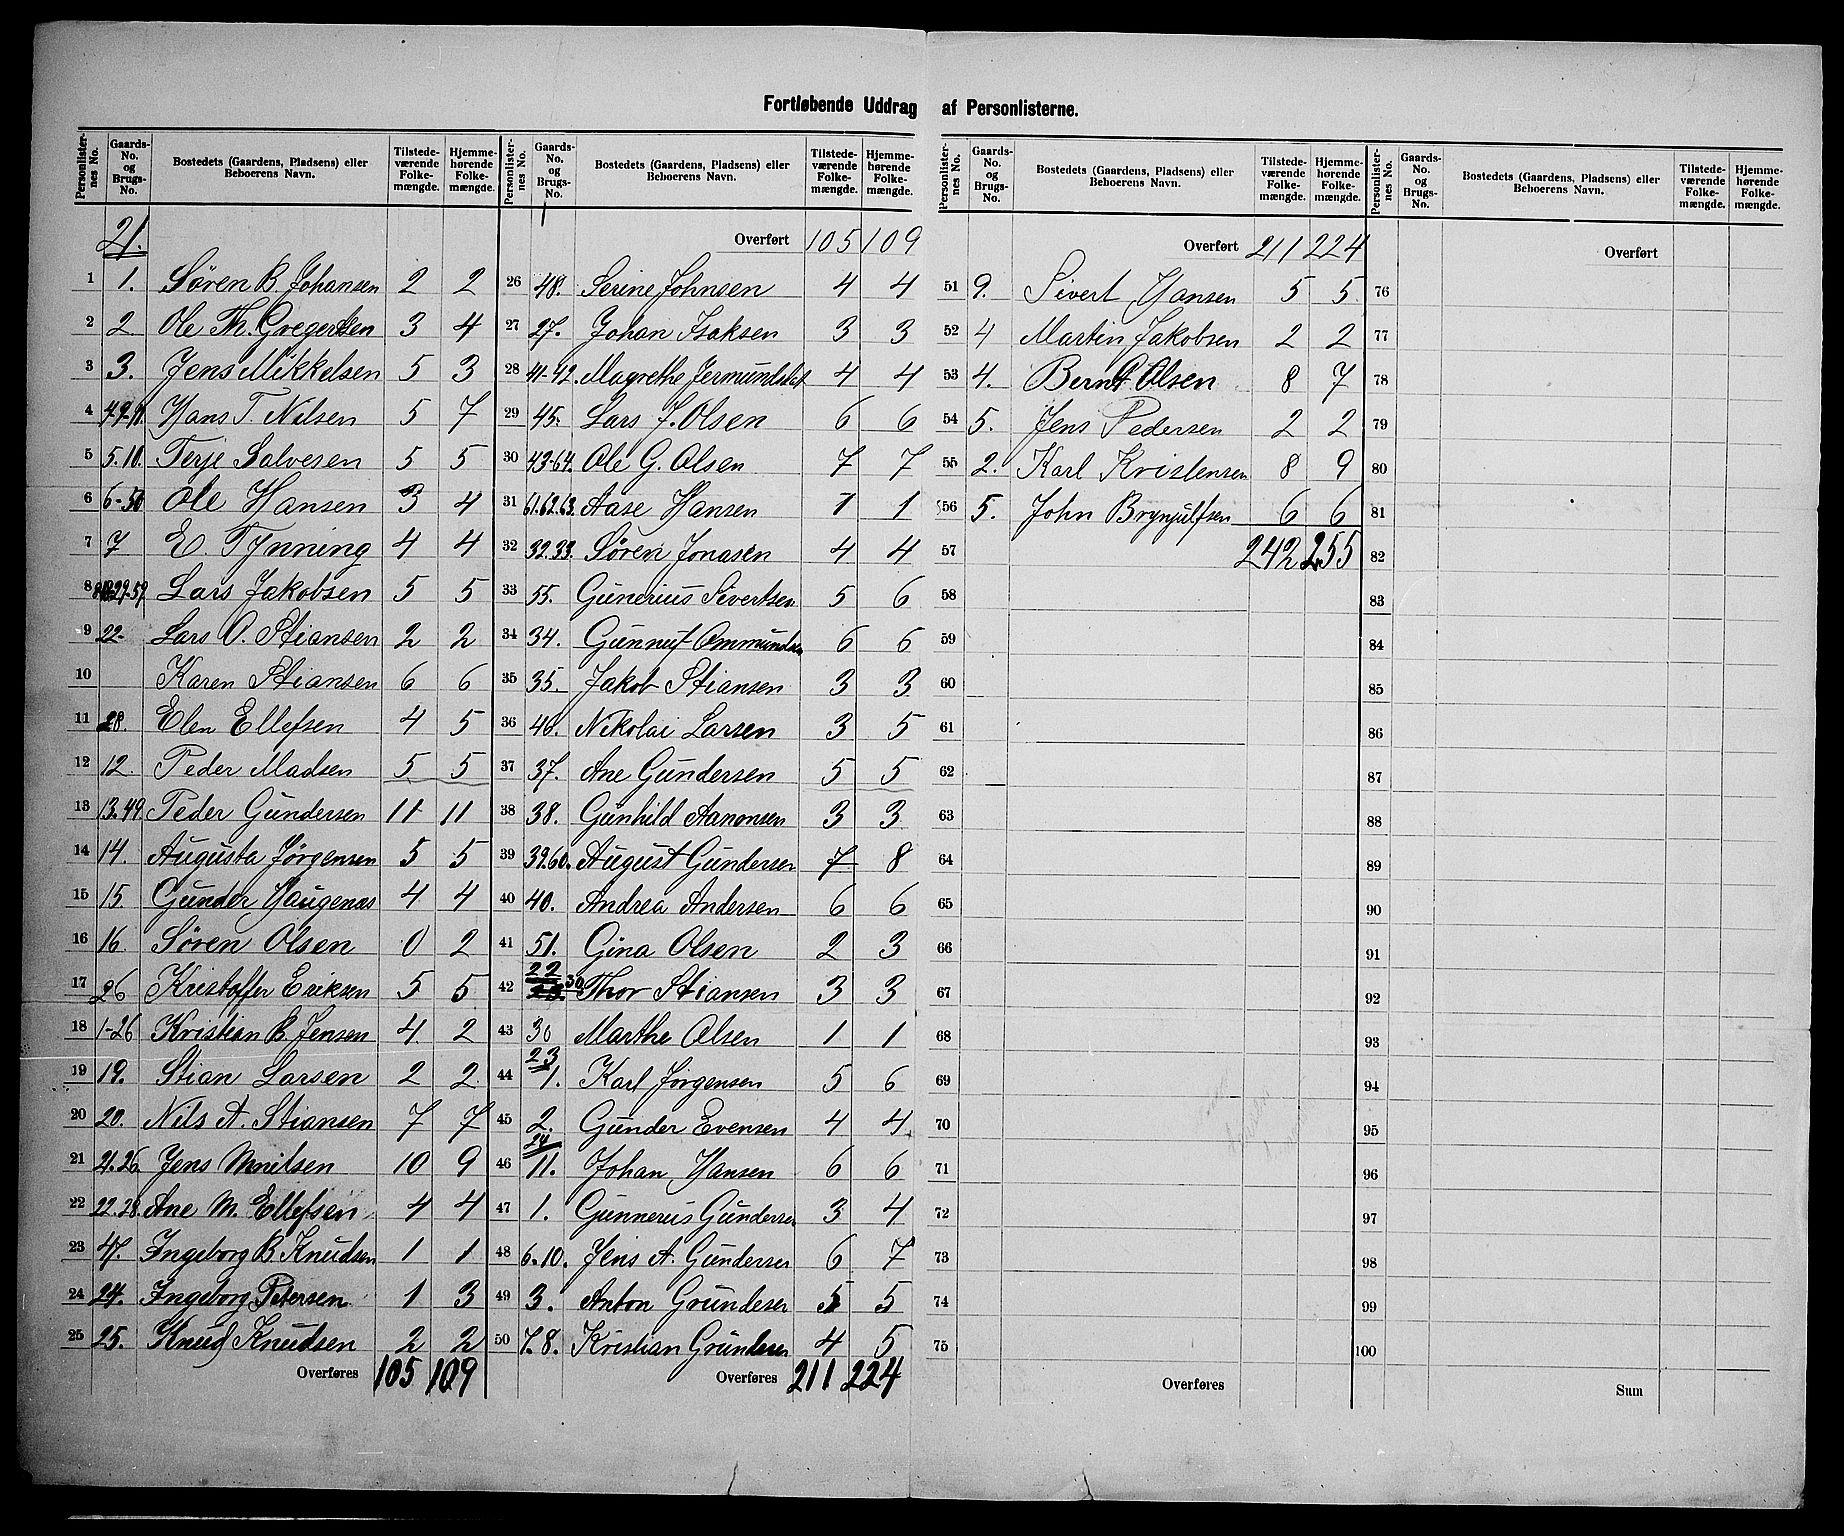 Fortløbende Uddrag af Personlisterne.
Personlister-nes No. Gaards-No. og Brugs-No. Bostedets (Gaardens, Pladsens) eller Beboerens Navn. Tilstede-værende Folke-mængde. Hjemme-hørende Folke-mængde.
21.
1 1. Søren B. Johansen 2 2
2 2 Ole Th. Gregersen 3 4
3 3. Jens Mikkelsen 5 3
4 Hans T. Nilsen 5 7
5 5.10. Terje Salvesen 5 5
6 6-50 Ole Hansen 3 4
7 7 E. Tynning 4 4
8 Lars Jakobsen 5 5
9 22- Lars O. Stiansen 2 2
10 Karen Stiansen 6 6
11 28. Elen Ellefsen 4 5
12 12. Peder Madsen 5 5
13 13.49. Peder Gundersen 11 11
14 14. Augusta Jørgensen 5 5
15 15. Gunder Haugenæs 4 4
16 16. Søren Olsen 0 2
17 26 Kristoffer Eriksen 5 5
18 1-26 Kristian B. Jensen 4 2
19 19. Stian Larsen 2 2
20 20. Nils A. Stiansen 7 7
21 21.26. Jens 10 9
22 22.28. Ane M. Ellefsen 4 4
23 47. Ingeborg B. Knudsen 1 1
24 24. Ingeborg Petersen 1 3
25 25. Knud Knudsen 2 2
Overføres 105 109
Personlister-nes No. Gaards-No. og Brugs-No. Bostedets (Gaardens, Pladsens) eller Beboerens Navn. Tilstede-værende Folke-mængde. Hjemme-hørende Folke-mængde.
Overført 105 109
26 48. Serine Johnsen 4 4
27 27. Johan Isaksen 3 3
28 41-42. Magrethe 4 4
29 45. Lars J. Olsen 6 6
30 43-64. Ole G. Olsen 7 7
31 61.62.63. Aase Hansen 1 1
32 32.33. Søren Jonasen 4 4
33 55. Gunerius Sivertsen 5 6
34 34. Gunnuf Ommundsen 6 6
35 35. Jakob Stiansen 3 3
36 46. Nikolai Larsen 3 5
37 37. Ane Gundersen 5 5
38 38. Gunhild Aanonsen 3 3
39 39.60. August Gundersen 7 8
40 40. Andrea Andersen 6 6
41 51. Gina Olsen 2 3
22
42 30 Thor Stiansen 3 3
43 30 Marthe Olsen 1 1
23
44 1. Karl Jørgensen 5 6
45 2. Gunder Evensen 4 4
24
46 11. Johan Hansen 6 6
47 1. Gunnerus Gundersen 3 4
48 6.10. Jens A. Gundersen 6 7
49 3. Anton Grundesen 5 5
50 7.8. Kristian Grundesen 4 5
Overføres 211 224
Personlister-nes No. Gaards-No. og Brugs-No. Bostedets (Gaardens, Pladsens) eller Beboerens Navn. Tilstede-værende Folke-mængde. Hjemme-hørende Folke-mængde.
Overført 211 224
51 9. Sivert Hansen 5 5
52 4 Martin Jakobsen 2 2
53 4. Bernt Olsen 8 7
54 5. Jens Pedersen 2 2
55 2. Karl Kristensen 8 9
56 5. John Brynjulfsen 6 6
57 242 255
58
59
60
61
62
63
64
65
66
67
68
69
70
71
72
73
74
75
Overføres
Personlister-nes No. Gaards-No. og Brugs-No. Bostedets (Gaardens, Pladsens) eller Beboerens Navn. Tilstede-værende Folke-mængde. Hjemme-hørende Folke-mængde.
Overført
76
77
78
79
80
81
82
83
84
85
86
87
88
89
90
91
92
93
94
95
96
97
98
99
100
Sum